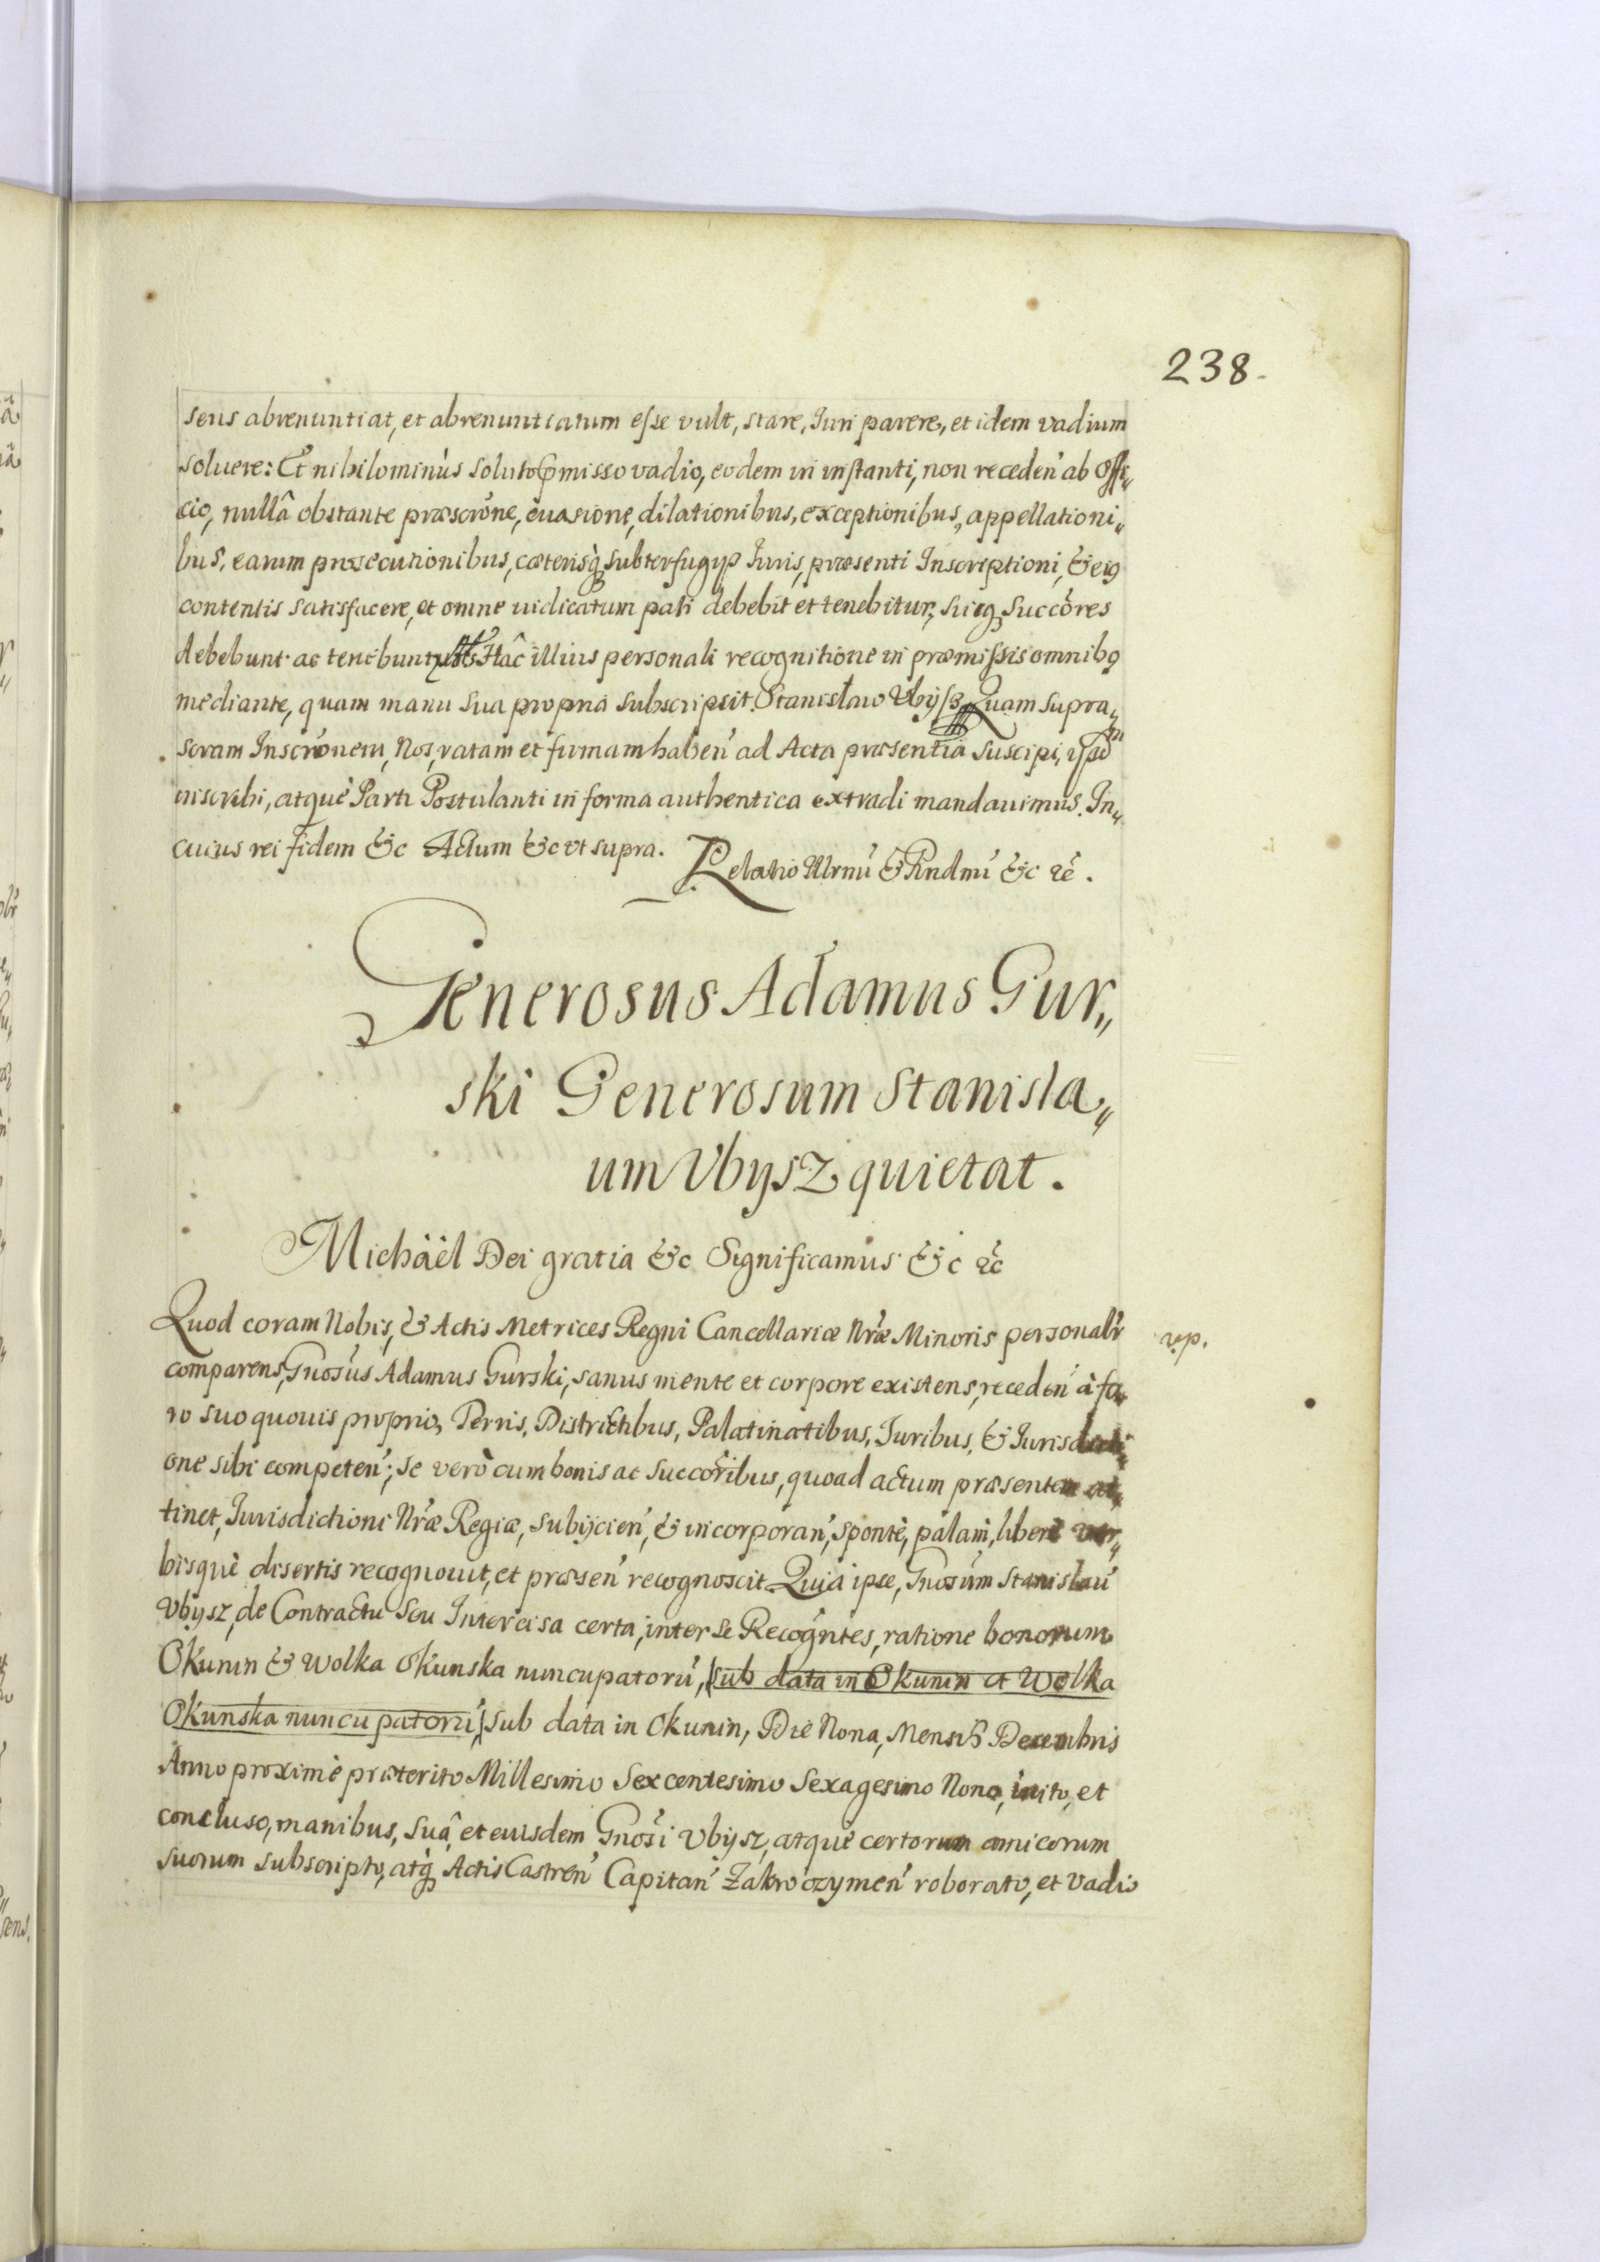 238.
sens abrenuntiat, et abrenuntiatum esse vult, stare, Iuri parere, et idem vadium
soluere: Et nihilominùs soluto pmisso vadio, eodem in instanti, non receden' ab Offi„
cio, nullâ obstante præscrōne, euasione, dilationibus, exceptionibus, appellationi„
bus, earum prosecutionibus, cæterisq̀ subterfugys Iuris, præsenti Inscriptioni, & ei9
contentis satisfacere, et omne iudicatum pati debebit et tenebitur, suiq3 Succōres
debebunt ac tenebuntur Hâc illius personali recognitione in præmissis omnib9
mediante, quam manu sua propria subscripsit. Stanisław Vbysz Quam supra„
scram Inscrōnem, Nos, ratam et firmam haben' ad Acta præsentia suscipi, ysd
inscribi, atquè Parti Postulanti in forma authentica extradi mandauimus. In„
cuius rei fidem &c Actum &c vt supra.
Relatio Illrmi & Rndmi &c &c.
Generosus Adamus Gur„
ski Generosum Stanisla„
um Vbysz quietat.
Michäel Dei gratia &c Significamus &c &c
Quod coram Nobis, & Actis Metrices Regni Cancellariæ Nræ Minoris personalr
rep.
comparens, Gnosus Adamus Gurski, sanus mente et corpore existens, receden' à fo„
ro suo quouis proprio, Terris, Districtibus, Palatinatibus, Iuribus, & Iurisdicti„
one sibi competen'; se verò cum bonis ac Succoribus, quoad actum præsentem at„
tinet, Iurisdictioni Nræ Regiæ, subijcien', & incorporan', spontè, palam, liberè ver„
bisquè disertis recognouit, et præsen' recognoscit Quia ipse, Gnosum Stanislau'
Vbysz, de Contractu Seu Intercisa certa, inter se Recogntes, ratione bonorum
Okunin & Wolka Okunska nuncupatorū, sub data in Okunin et Wolka
Okunska nuncupatorū, sub data in Okunin, Die Nona, Mensis Decembris
Anno proximè præterito Millesimo Sexcentesimo Sexagesimo Nono, inito, et
concluso, manibus, suâ, et eiusdem Gnosi Vbysz, atquè certorum amicorum
suorum subscripto, atq̀3 Actis Castren' Capitan' Zakroczymen' roborato, et vadio